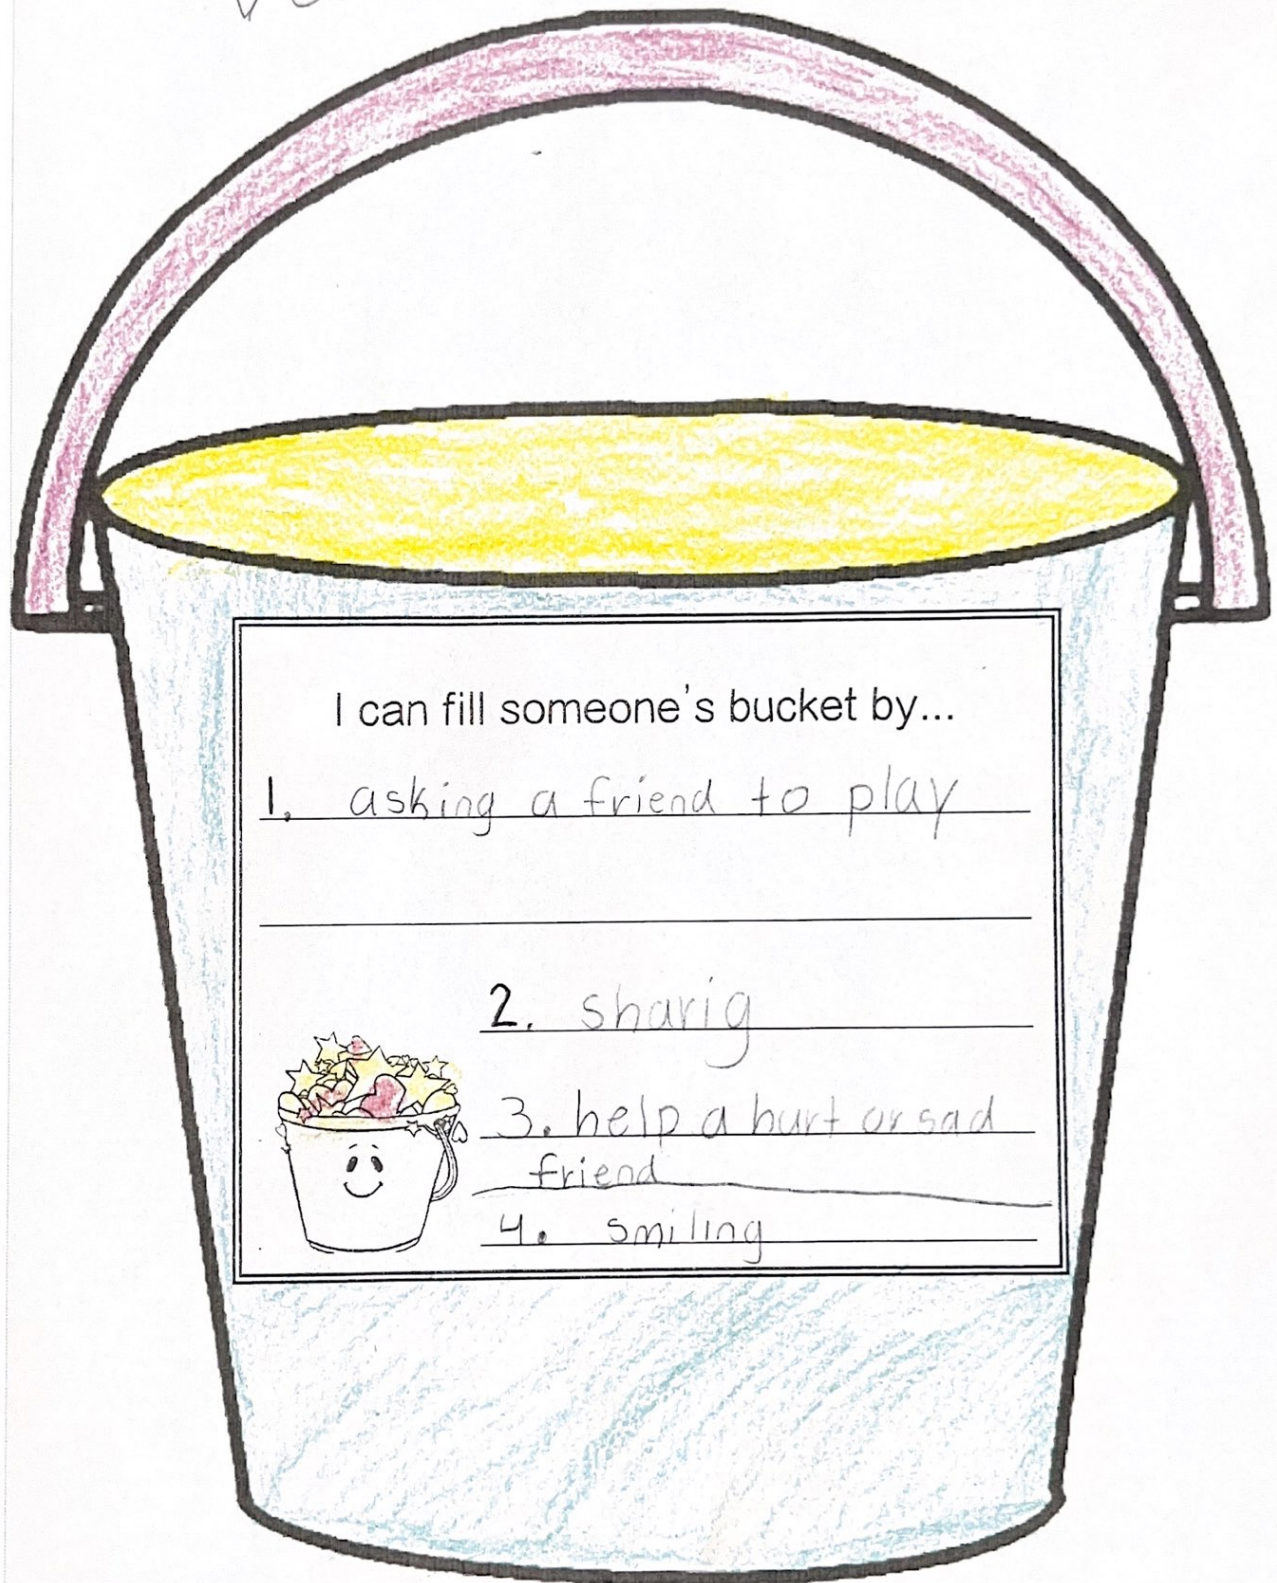 I can fill someone's bucket by...
1. asking a friend to play
2. sharig
3. help a hurt or sad
friend
4. smiling